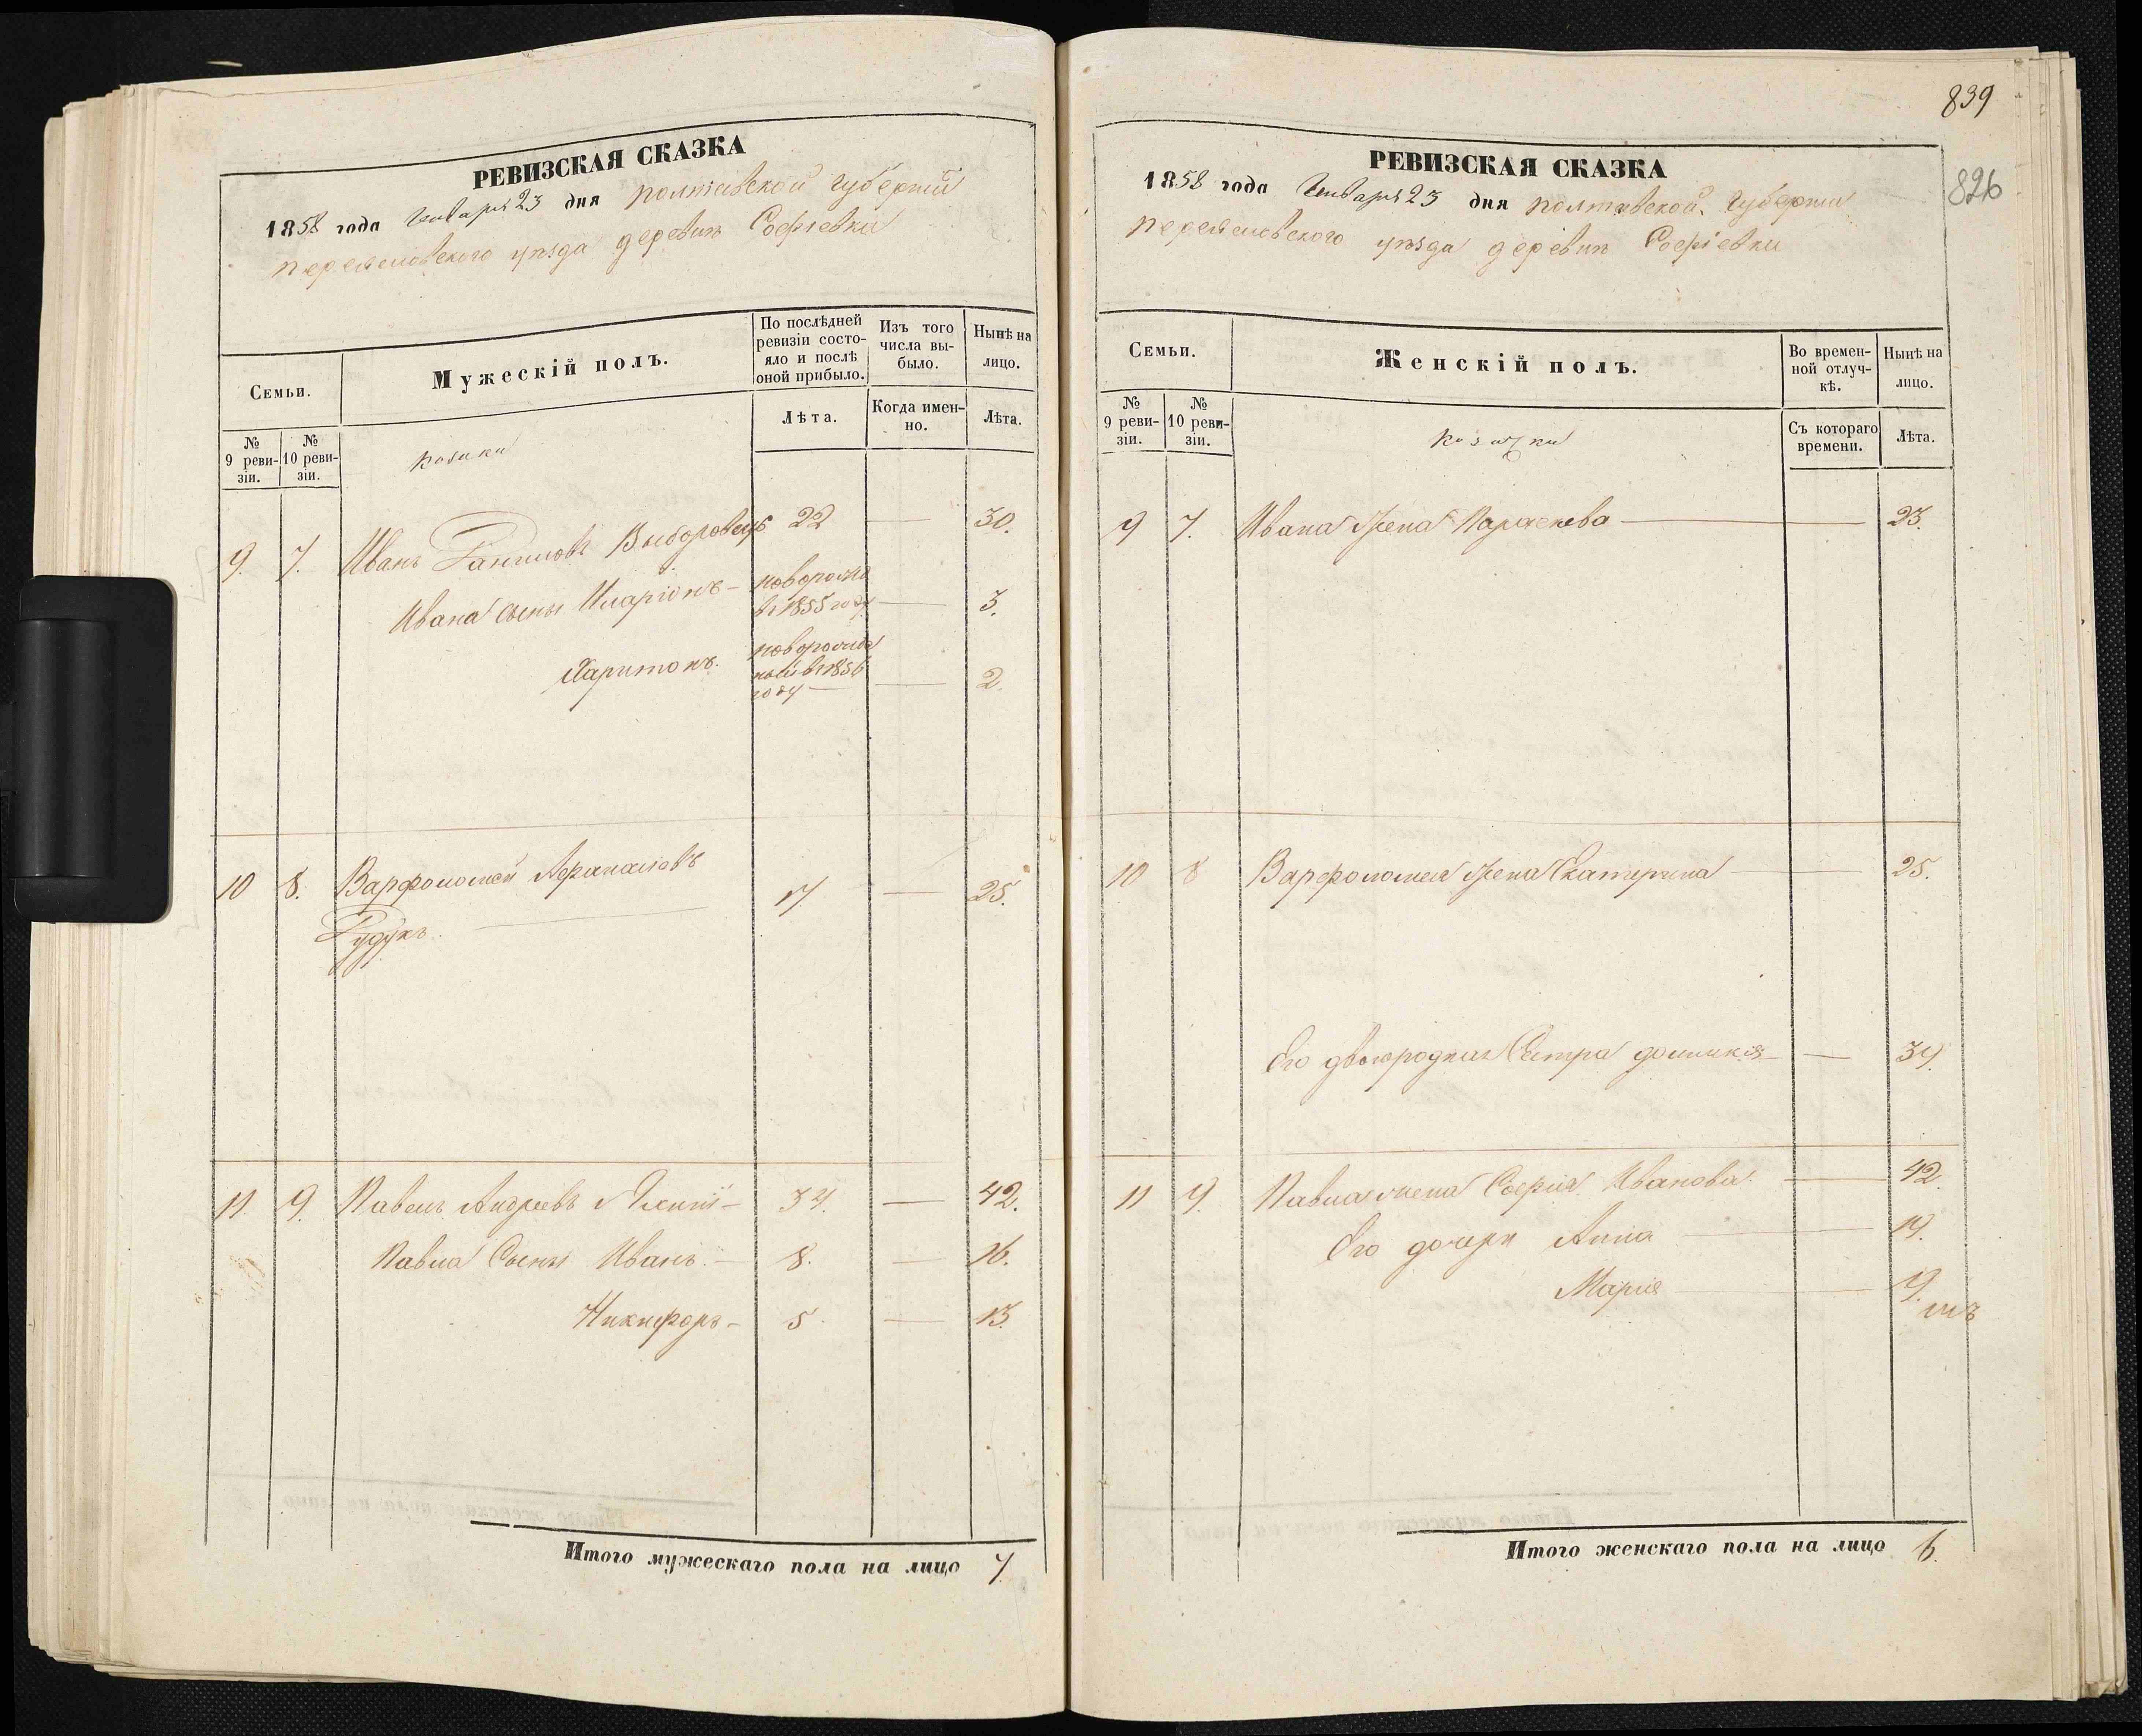 РЕВИЗСКАЯ СКАЗКА
1858 года Января 23 дня Полтавской Губернии
уѣзда деревни Софіевки
Семьи.
Мужескій полъ.
По послѣдней ревизіи состояло и послѣ оной прибыло.
Изъ того числа выбыло.
Нынѣ на лицо.
№ 9 ревизіи.
№ 10 ревизіи.
козаки
Лѣта.
Когда именно.
Лѣта.
9. 7. Иванъ Выборовецъ 22 — 30.
Ивана сыны Иларіонъ — новорож. въ 1855 году — 3.
Харитонъ. новорожденый въ 1856 году — 2.
10 8. Варфоломей Афанасіевъ
17 — 25.
11. 9. Павелъ Андреевъ — 34. — 42.
Павла Сыны Иванъ. — 8. — 16.
Никифоръ — 5. — 13.
Итого мужескаго пола на лицо 7.
839
826
РЕВИЗСКАЯ СКАЗКА
1858 года Января 23 дня Полтавской Губернии
уѣзда деревни Софіевки
Семьи.
Женскій полъ.
Во временной отлучкѣ.
Нынѣ на лицо.
№ 9 ревизіи.
№ 10 ревизіи.
козачки
Съ котораго времени.
Лѣта.
9 7. Ивана Жена Параскева — 23.
10 8 Варфоломея Жена Екатерина — 25.
Его двоюродная Сестра Домникія — 34.
11 9. Павла жена Софія Иванова. — 42.
Его дочери Анна — 14.
Марія — 9.
Итого женскаго пола на лицо 6.